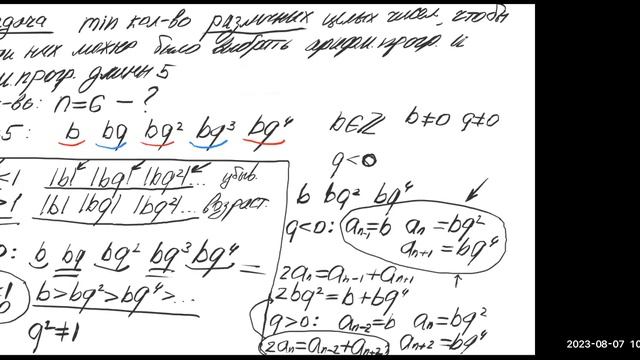 задача min кол-во различных целых чисел, чтобы
из них можно было выбрать арифм. прогр. и
прогр. длины 5
n=6 - ?
5: b bq bq² bq³ bq⁴ b∈ℤ b≠0 q≠0
q<0
<1 |b| |bq| |bq²| ... убыв.
>1 |b| |bq| |bq²| ... возраст.
b bq² bq⁴
q<0: aₙ₋₁=b aₙ=bq²
aₙ₊₁=bq⁴
0: b bq bq² bq³ bq⁴
b>bq²>bq⁴>...
q²≠1
2aₙ=aₙ₋₁+aₙ₊₁
2bq²=b+bq⁴
q>0: aₙ₋₂=b aₙ=bq²
2aₙ=aₙ₋₂+aₙ₊₂ aₙ₊₂=bq⁴
2023-08-07 10